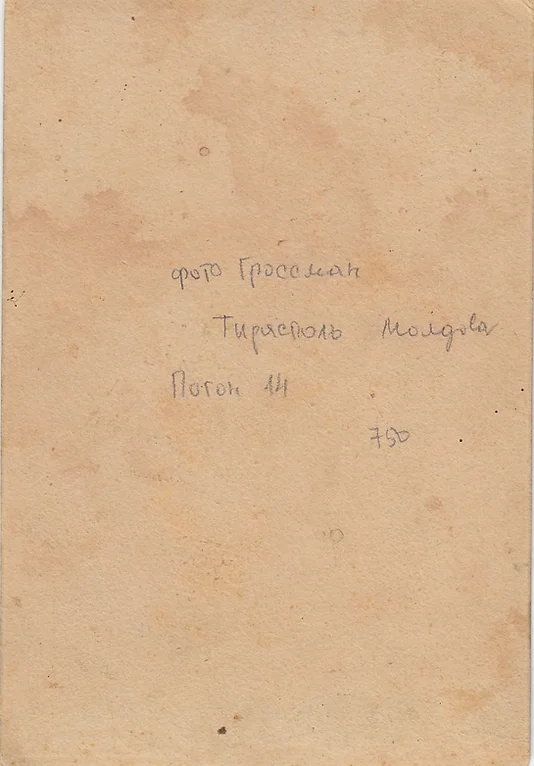 фото Гроссман
Тирасполь Молдова
Погон 14
750